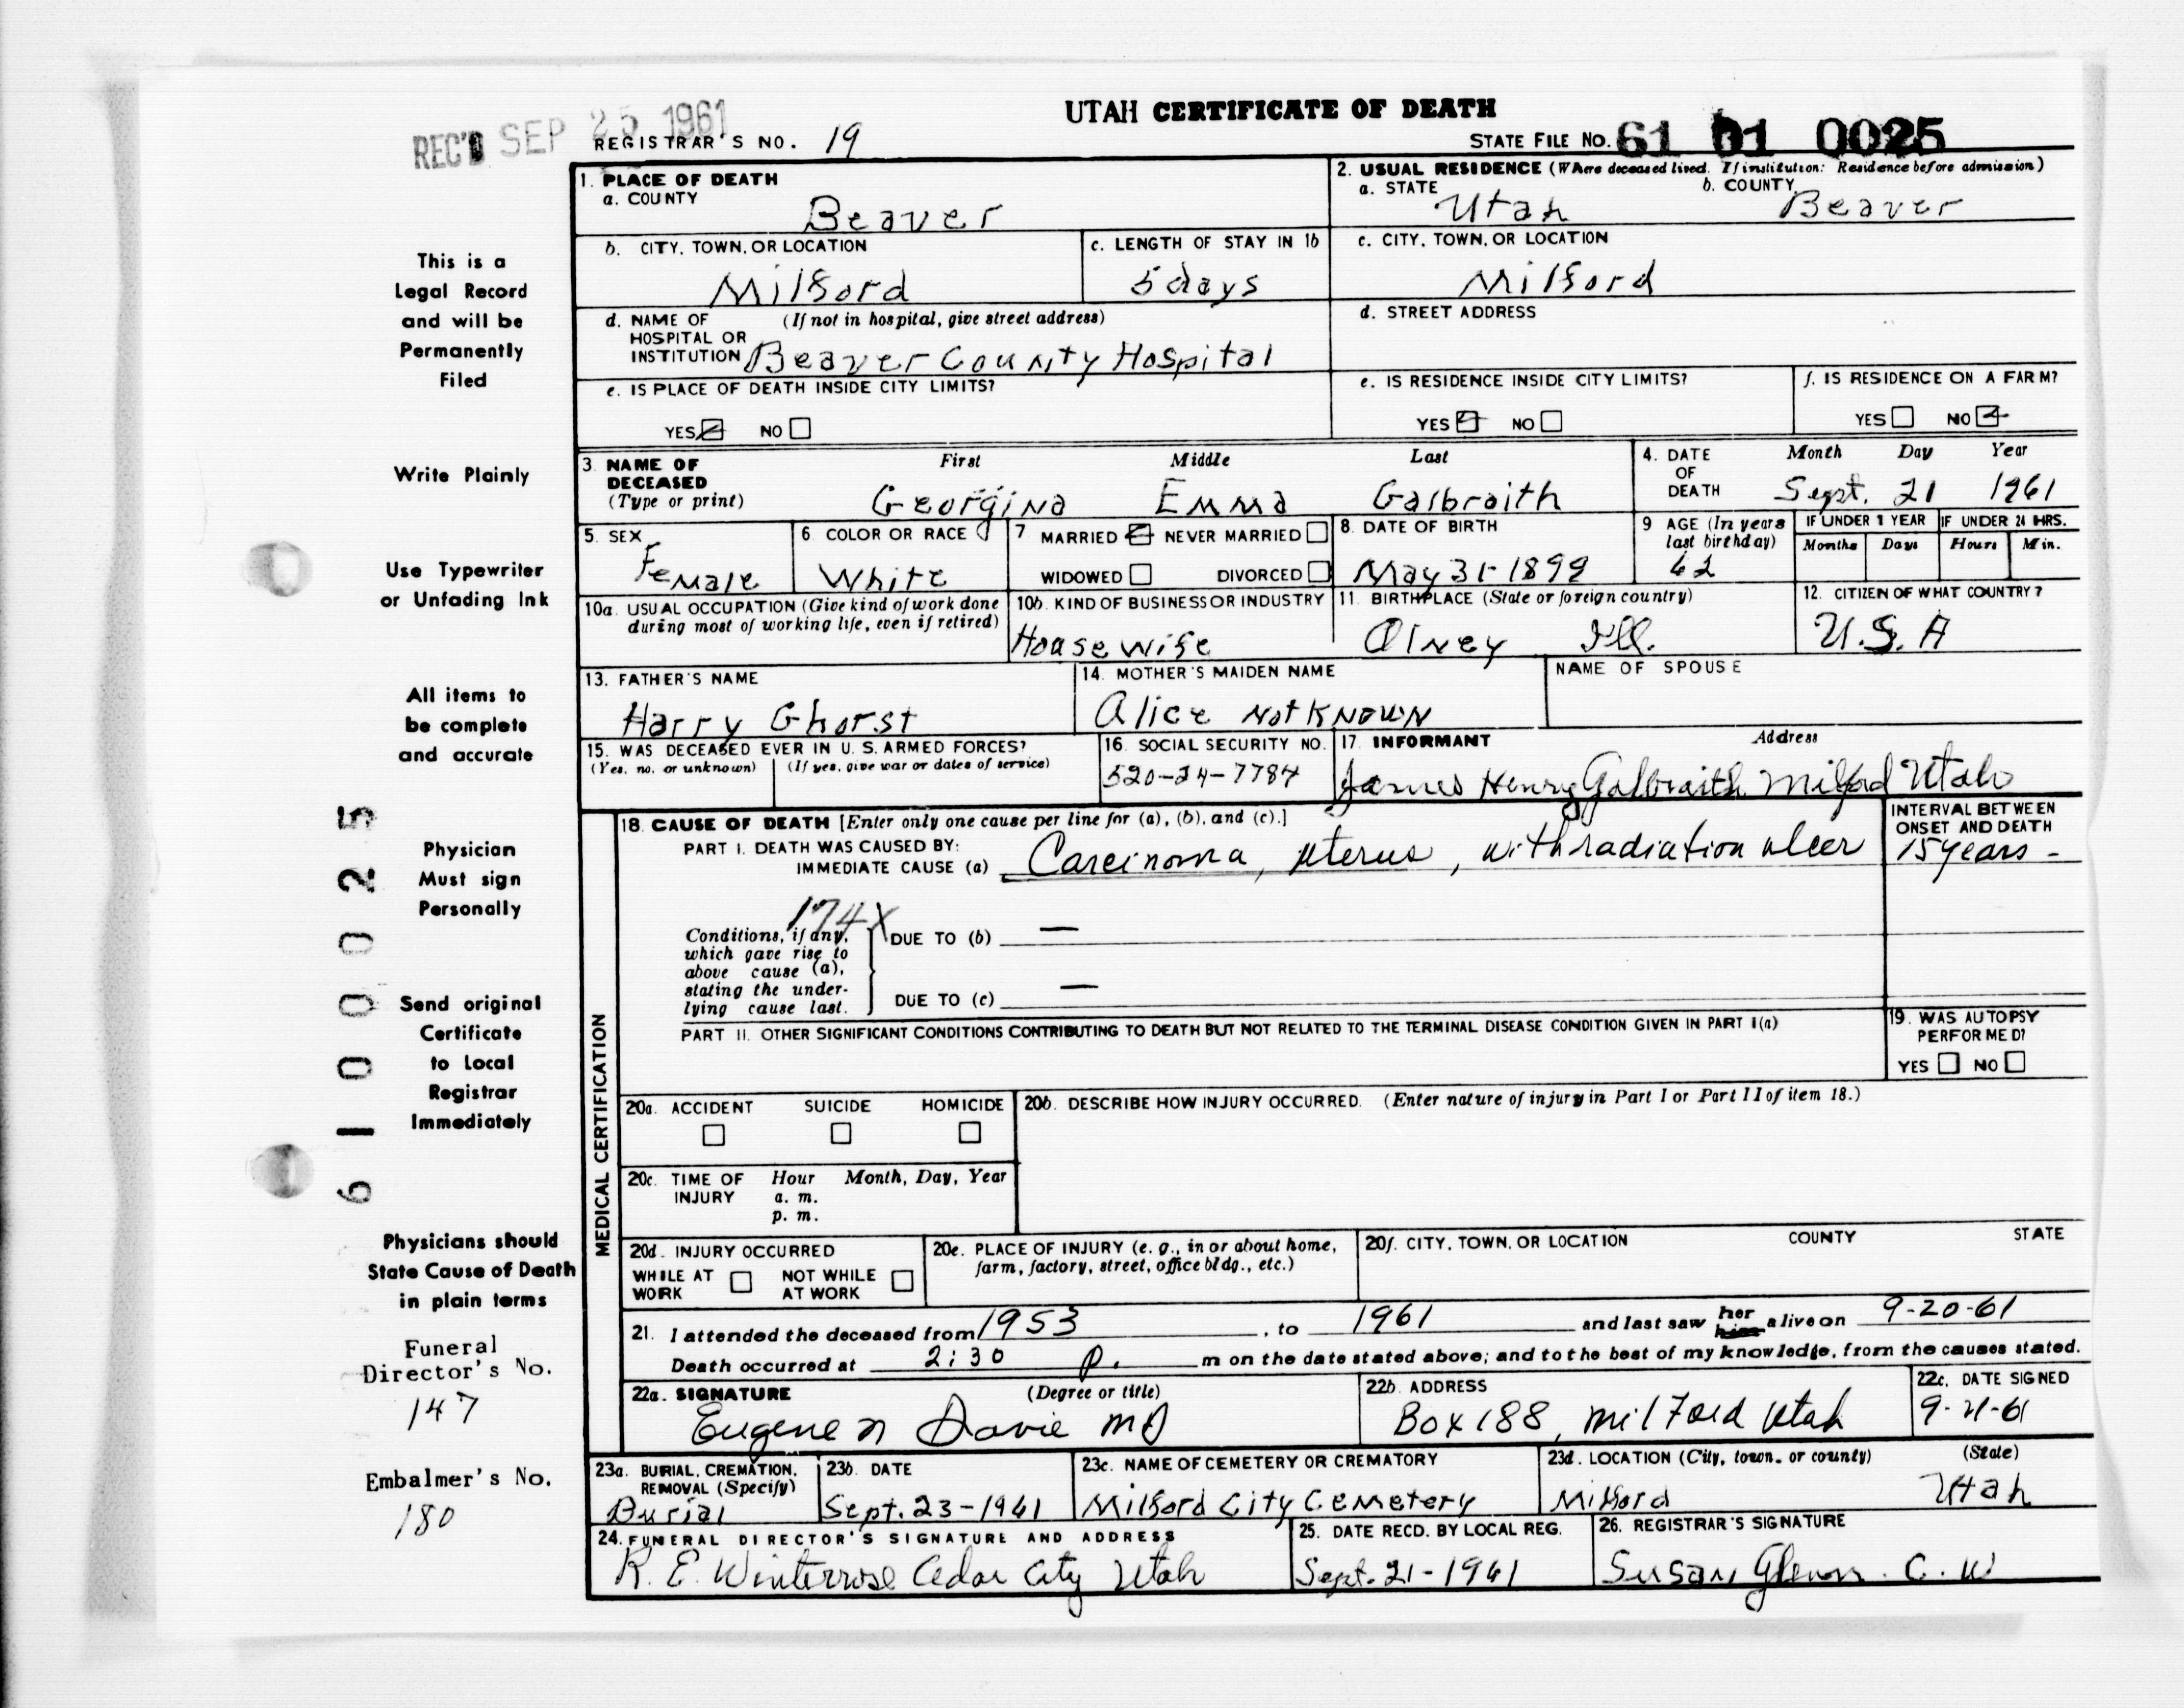 UTAH CERTIFICATE OF DEATH
REC'D SEP 25 1961
REGISTRAR'S NO. 19
STATE FILE NO. 61 01 0025
1. PLACE OF DEATH
a. COUNTY
Beaver
2. USUAL RESIDENCE (Where deceased lived. If institution: Residence before admission)
a. STATE Utah b. COUNTY Beaver
This is a
Legal Record
and will be
Permanently
Filed
b. CITY, TOWN, OR LOCATION
Milford
c. LENGTH OF STAY IN 1b
5 days
c. CITY, TOWN, OR LOCATION
Milford
d. NAME OF (If not in hospital, give street address)
HOSPITAL OR
INSTITUTION Beaver County Hospital
d. STREET ADDRESS
e. IS PLACE OF DEATH INSIDE CITY LIMITS?
YES NO
e. IS RESIDENCE INSIDE CITY LIMITS?
YES NO
f. IS RESIDENCE ON A FARM?
YES NO
Write Plainly
3. NAME OF
DECEASED
(Type or print)
First Middle Last
Georgina Emma Galbraith
4. DATE
OF
DEATH
Month Day Year
Sept. 21 1961
Use Typewriter
or Unfading Ink
5. SEX
Female
6. COLOR OR RACE
White
7 MARRIED NEVER MARRIED
WIDOWED DIVORCED
8. DATE OF BIRTH
May 31-1899
9 AGE (In years
last birthday)
62
IF UNDER 1 YEAR IF UNDER 24 HRS.
Months Days Hours Min.
10a. USUAL OCCUPATION (Give kind of work done
during most of working life, even if retired)
10b. KIND OF BUSINESS OR INDUSTRY
House wife
11. BIRTHPLACE (State or foreign country)
Olney Ill.
12. CITIZEN OF WHAT COUNTRY?
U.S.A
All items to
be complete
and accurate
13. FATHER'S NAME
Harry Ghorst
14. MOTHER'S MAIDEN NAME
Alice Not Known
NAME OF SPOUSE
15. WAS DECEASED EVER IN U. S. ARMED FORCES?
(Yes, no, or unknown) (If yes, give war or dates of service)
16. SOCIAL SECURITY NO.
520-24-7784
17. INFORMANT Address
James Henry Galbraith Milford Utah
61 0 0025
Physician
Must sign
Personally
MEDICAL CERTIFICATION
18. CAUSE OF DEATH [Enter only one cause per line for (a), (b), and (c).]
PART I. DEATH WAS CAUSED BY:
IMMEDIATE CAUSE (a) Carcinoma, uterus, with radiation ulcer
INTERVAL BETWEEN
ONSET AND DEATH
15 years -
174X
Conditions, if any,
which gave rise to
above cause (a),
stating the under-
lying cause last.
DUE TO (b) —
DUE TO (c) —
Send original
Certificate
to Local
Registrar
Immediately
PART II. OTHER SIGNIFICANT CONDITIONS CONTRIBUTING TO DEATH BUT NOT RELATED TO THE TERMINAL DISEASE CONDITION GIVEN IN PART I(a)
19. WAS AUTOPSY
PERFORMED?
YES NO
20a. ACCIDENT SUICIDE HOMICIDE
20b. DESCRIBE HOW INJURY OCCURRED. (Enter nature of injury in Part I or Part II of item 18.)
20c. TIME OF Hour Month, Day, Year
INJURY a. m.
p. m.
Physicians should
State Cause of Death
in plain terms
20d. INJURY OCCURRED
WHILE AT NOT WHILE
WORK AT WORK
20e. PLACE OF INJURY (e. g., in or about home,
farm, factory, street, office bldg., etc.)
20f. CITY, TOWN, OR LOCATION COUNTY STATE
21. I attended the deceased from 1953, to 1961 and last saw her him alive on 9-20-61
Death occurred at 2:30 p. m on the date stated above; and to the best of my knowledge, from the causes stated.
Funeral
Director's No.
147
22a. SIGNATURE (Degree or title)
Eugene N Davie MD
22b. ADDRESS
Box 188, Milford Utah
22c. DATE SIGNED
9-21-61
Embalmer's No.
180
23a. BURIAL, CREMATION,
REMOVAL (Specify)
Burial
23b. DATE
Sept. 23-1961
23c. NAME OF CEMETERY OR CREMATORY
Milford City Cemetery
23d. LOCATION (City, town, or county) (State)
Milford Utah
24. FUNERAL DIRECTOR'S SIGNATURE AND ADDRESS
R. E. Winterrose Cedar City Utah
25. DATE RECD. BY LOCAL REG.
Sept. 21-1961
26. REGISTRAR'S SIGNATURE
Susan Glenn. C. W